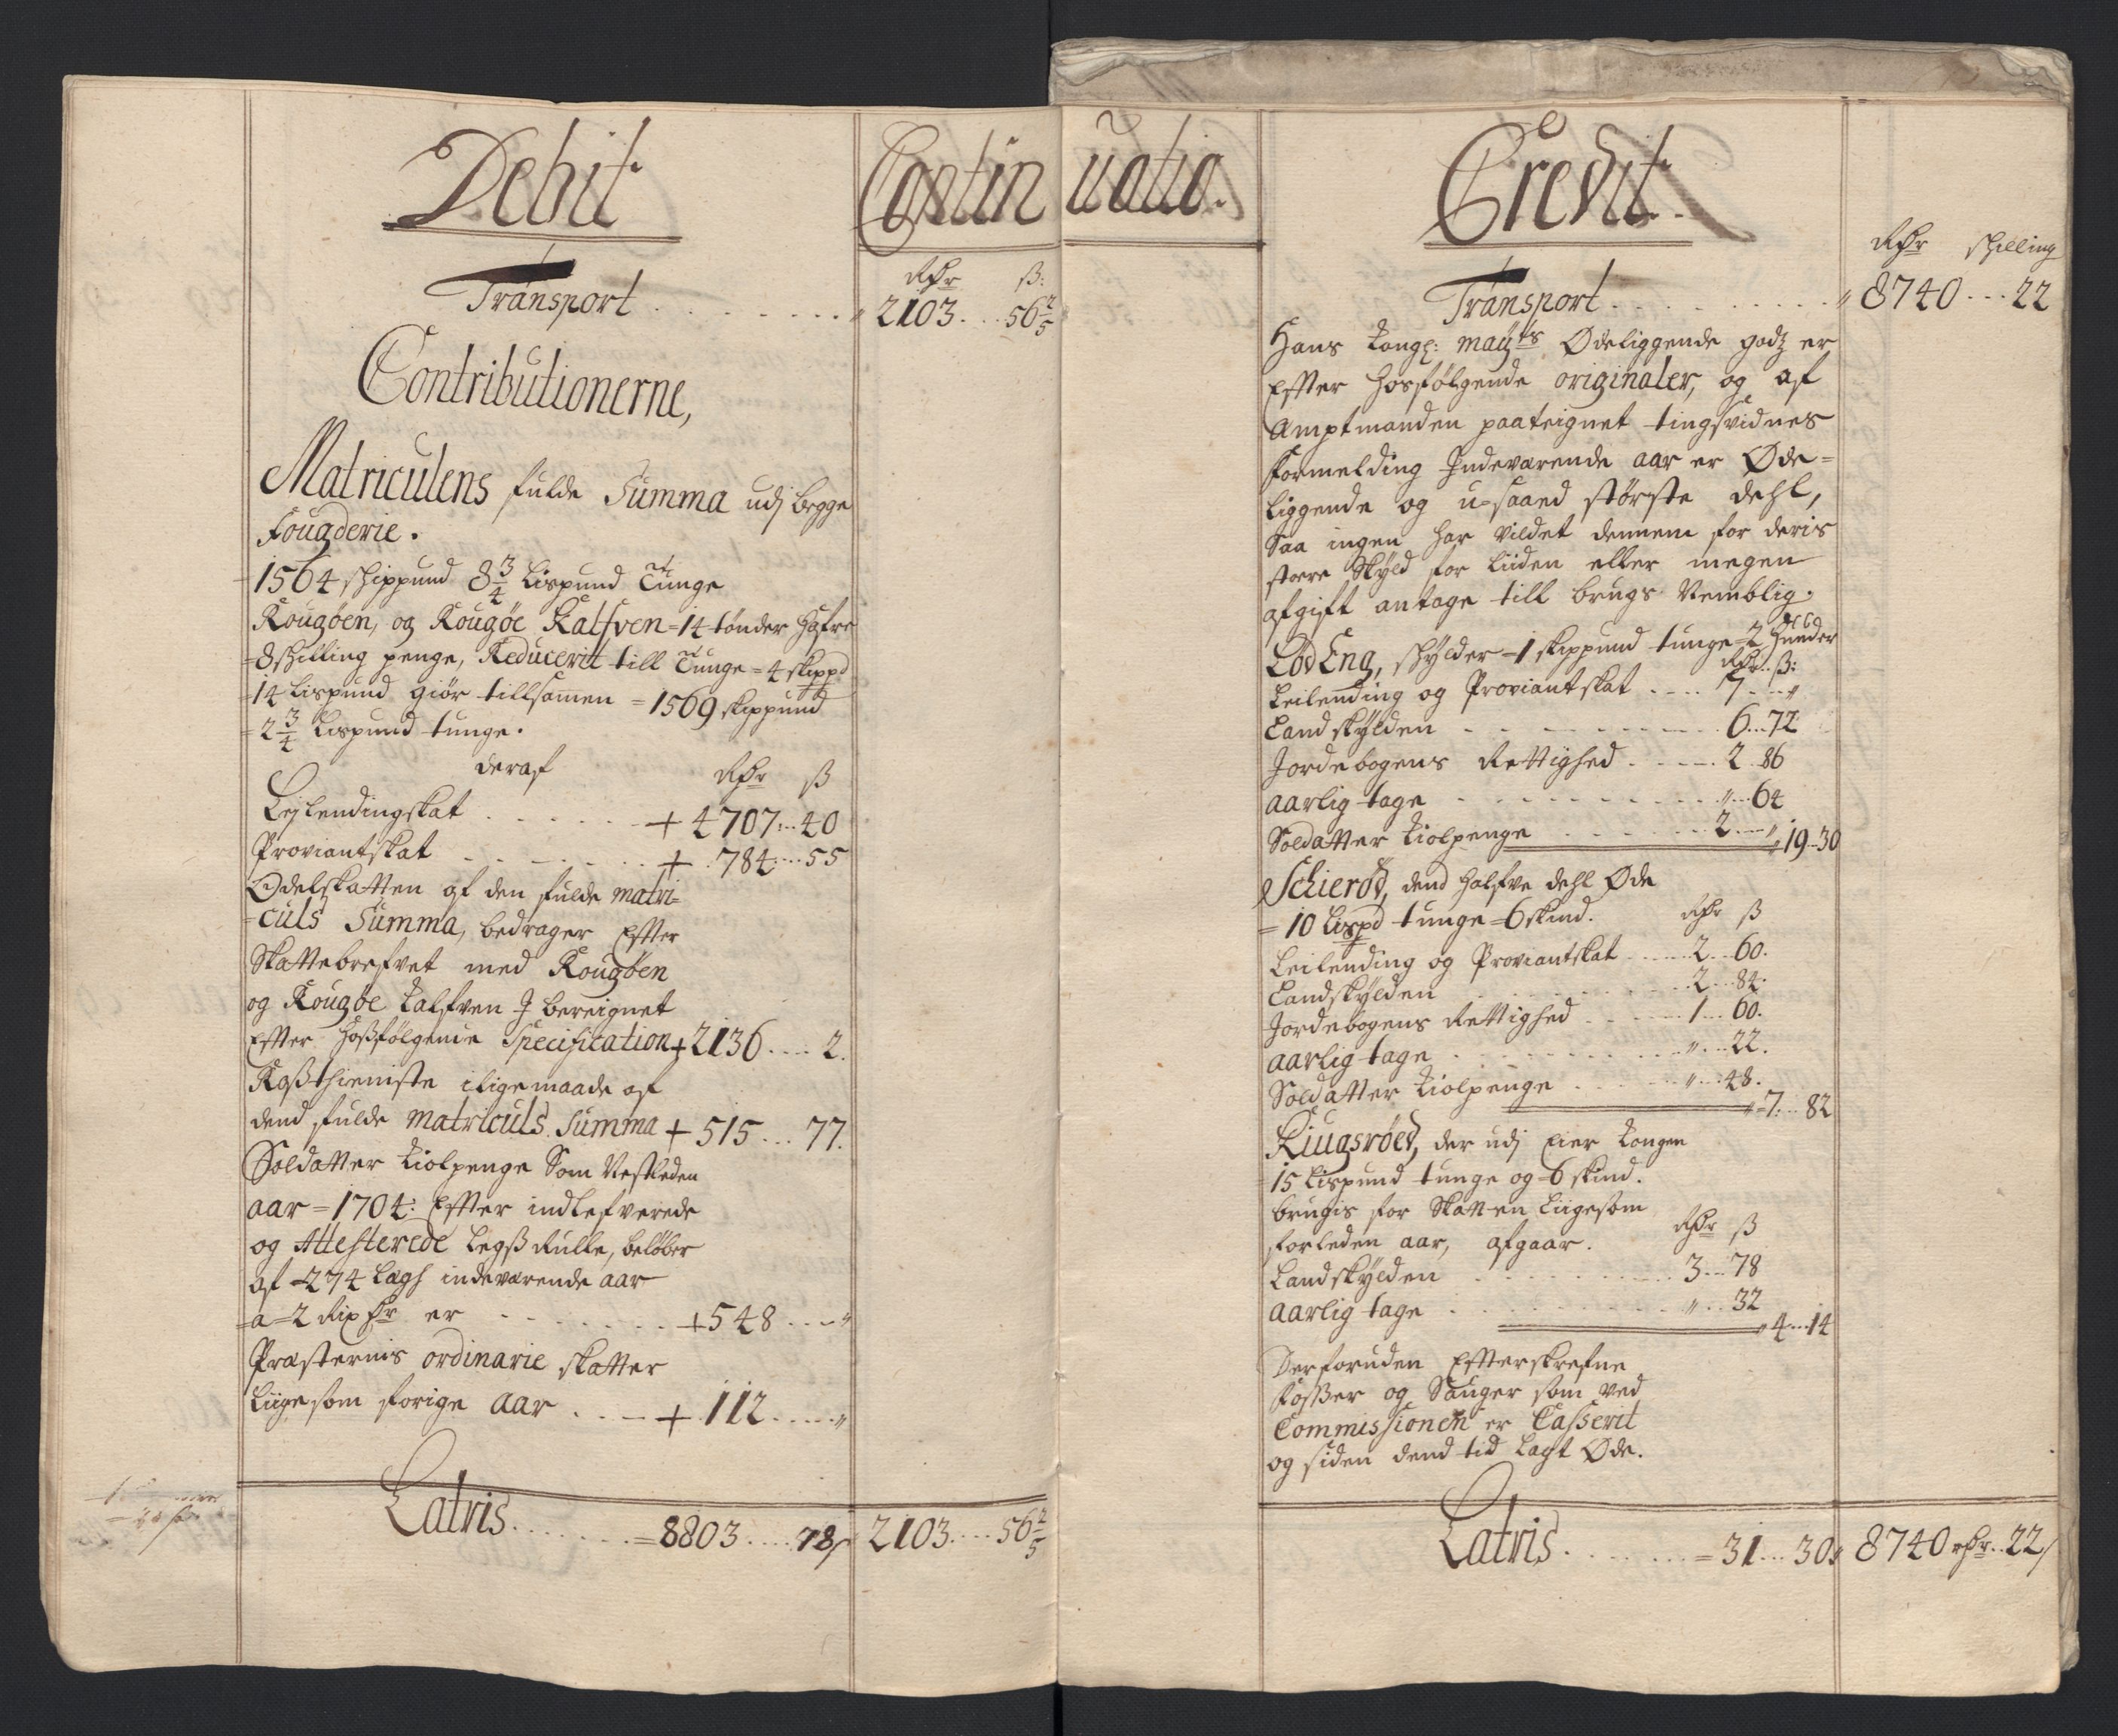 Debit
Continuatio.
Rdr ß:
Transport . . . . . . . . 2103. . . 56 2/5
Contributionerne,
Matriculens fulde Summa udj begge
Fougderie.
1564 schippund 8 3/4 Lispund Tunge
Kougøen, og Kougøe Kalfven = 14 tønder hafre
8 schilling penge, Reducerit till Tunge = 4 skippd
14 Lispund giør tillsamen = 1569 skippund
2 3/4 Lispund tunge.
deraf Rdr ß
Leylendingskat . . . . . . + 4707 : . . 40
Proviantskat . . . . . . . + 784 . . . 55
Odelskatten af den fulde matri=
=culs Summa, bedrager Efter
Skattebrefvet med Kougøen
og Kougøe Kalfven J bereignet
Efter hoßfølgende Specification + 2136 . . . . 2.
Roßthieniste iligemaade af
dend fulde matriculs Summa + 515 . . . 77.
Soldatter Kiolpenge Som Nestleden
aar = 1704: Efter indlefverede
og Attesterede Legß Rulle, beløber
af = 274 Lægh indeværende aar
a = 2 Rixdr er . . . . . . . + 548 . . . "
Præsternis ordinarie skatter
liigesom forige aar . . . + 112 . . . . "
Latris. . . . . . = 8803 . . . . 78 ß 2103. . . . 56 2/5
Credit.
Rdr schilling
Transport . . . . . . . . . . " 8740 . . . 22
Hans Kongl: mayts Ødeliggende godz er
Efter hosfølgende originaler, og af
Amptmanden paateignet tingsvidnes
formelding Indeværende aar er Øde=
liggende og u=saaed største dehl,
Saa ingen har vildet dennem for deris
store Skyld for liiden eller megen
afgift antage till brugs Nemblig.
Lød Eng, schylder = 1 skippund tunge = 2 huder
Rdr. ß:
Leilending og Proviantskat . . . . 7 . . . "
Landskylden . . . . . . . . . 6 . . . 72
Jordebogens Rettighed . . . . . 2 . 86
aarlig tage . . . . . . . . . . " . . . 64
Soldatter Kiolpenge . . . . . . 2 . . . " " 19 . . 30
Schierød, dend halfve dehl Øde
= 10 Lispd tunge = 6 skind. Rdr ß
Leilending og Proviantskat . . . . 2 . . 60.
Landskylden . . . . . . . . 2 . . . 84.
Jordebogens Rettighed . . . . 1 . . . 60.
aarlig tage . . . . . . . . " . . . 22.
Soldatter Kiolpenge . . . . . " . . . 48.
" 7. . . 82
Kiugsrøed, der udj Eier Kongen
15 Lispund tunge og 6 skind.
brugis for Skatten Liigesom
forleden aar, afgaar. Rdr ß
Landskylden . . . . . . . . 3 . . . 78
aarlig tage . . . . . . . . " . . . 32
" 4 . . . 14
Derforuden Efterskrefne
Foßer og Sauger som ved
Commissionen er Casserit
og siden dend tid Lagt Øde.
Latris . . . . . . . = 31 . . . 30 ß 8740 rdr . . 22 ß